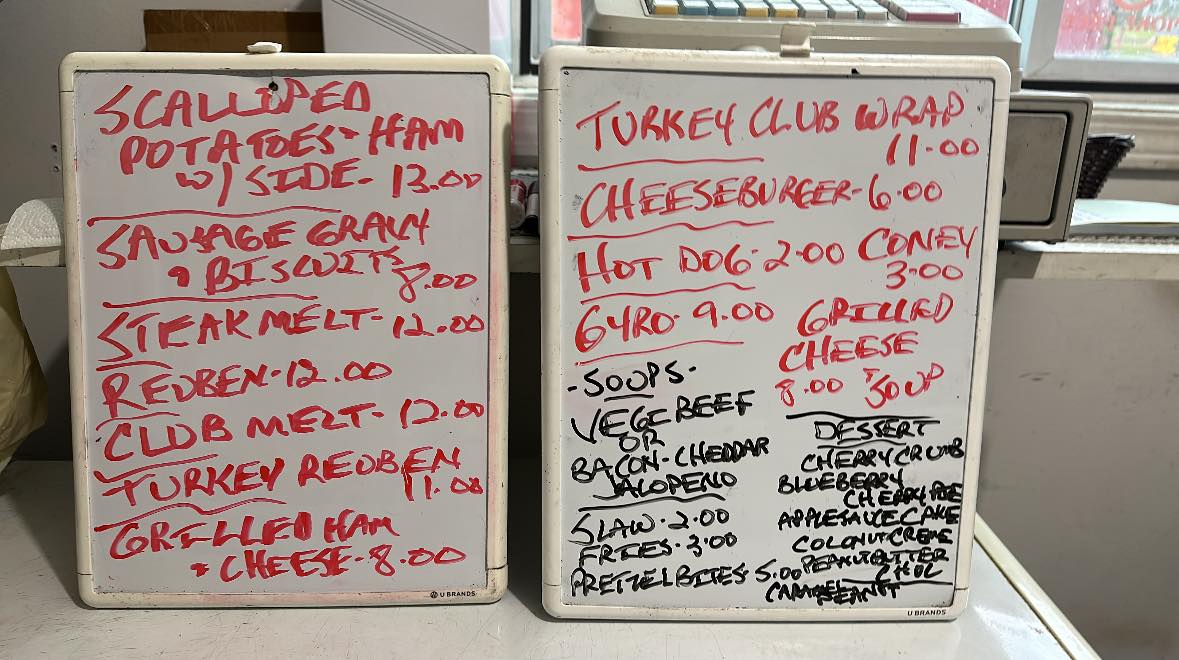 SCALLOPED
POTATOES & HAM
W/ SIDE - 13.00
SAUSAGE GRAVY
& BISCUITS
8.00
STEAK MELT - 12.00
REUBEN - 12.00
CLUB MELT - 12.00
TURKEY REUBEN
11.00
GRILLED HAM
& CHEESE - 8.00
U BRANDS
TURKEY CLUB WRAP
11.00
CHEESEBURGER - 6.00
HOT DOG - 2.00 CONEY
3.00
GYRO - 9.00
GRILLED
CHEESE
8.00 & SOUP
- SOUPS -
VEGE BEEF
OR
BACON - CHEDDAR
JALOPENO
SLAW - 2.00
FRIES - 3.00
PRETZEL BITES - 5.00
DESSERT
CHERRY CRUMB
BLUEBERRY
CHERRY PIE
APPLESAUCE CAKE
COCONUT CREME
PEANUTBUTTER
CHOC
CARAMEL PEANUT
U BRANDS